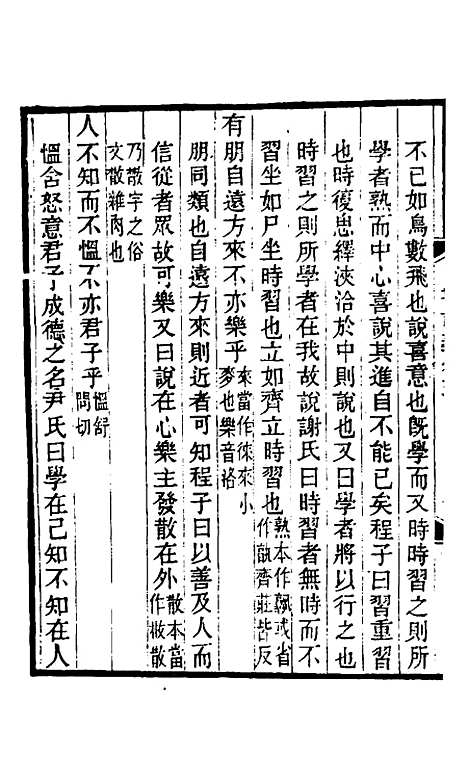 不已如鳥數飛也說喜意也旣學而又時時習之則所
學者熟而中心喜說其進自不能已矣程子曰習重習
也時復思繹浹洽於中則說也又曰學者將以行之也
時習之則所學者在我故說謝氏曰時習者無時而不
習坐如尸坐時習也立如齊立時習也熟本作孰或省作𦏧齊莊皆反
有朋自遠方來不亦樂乎來當作徠來小麥也樂音洛
朋同類也自遠方來則近者可知程子曰以善及人而
信從者眾故可樂又曰說在心樂主發散在外散本當作㪔散
乃㪔字之俗文散雜肉也
人不知而不慍不亦君子乎慍紆問切
慍含怒意君子成德之名尹氏曰學在己知不知在人